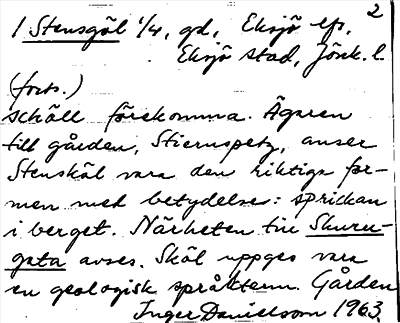 2
1 Stensgöl 1/4, gd, Eksjö lfs,
Eksjö stad, Jönk. l.
(forts.)
schäll förekomma. Ägaren
till gården, Stiernspetz, anser
Stenskäl vara den riktiga for-
men med betydelse: sprickan
i berget. Närheten till Skuru-
gata avses. Skäl uppges vara
en geologisk språkterm. Gården
Inger Danielsson 1963.